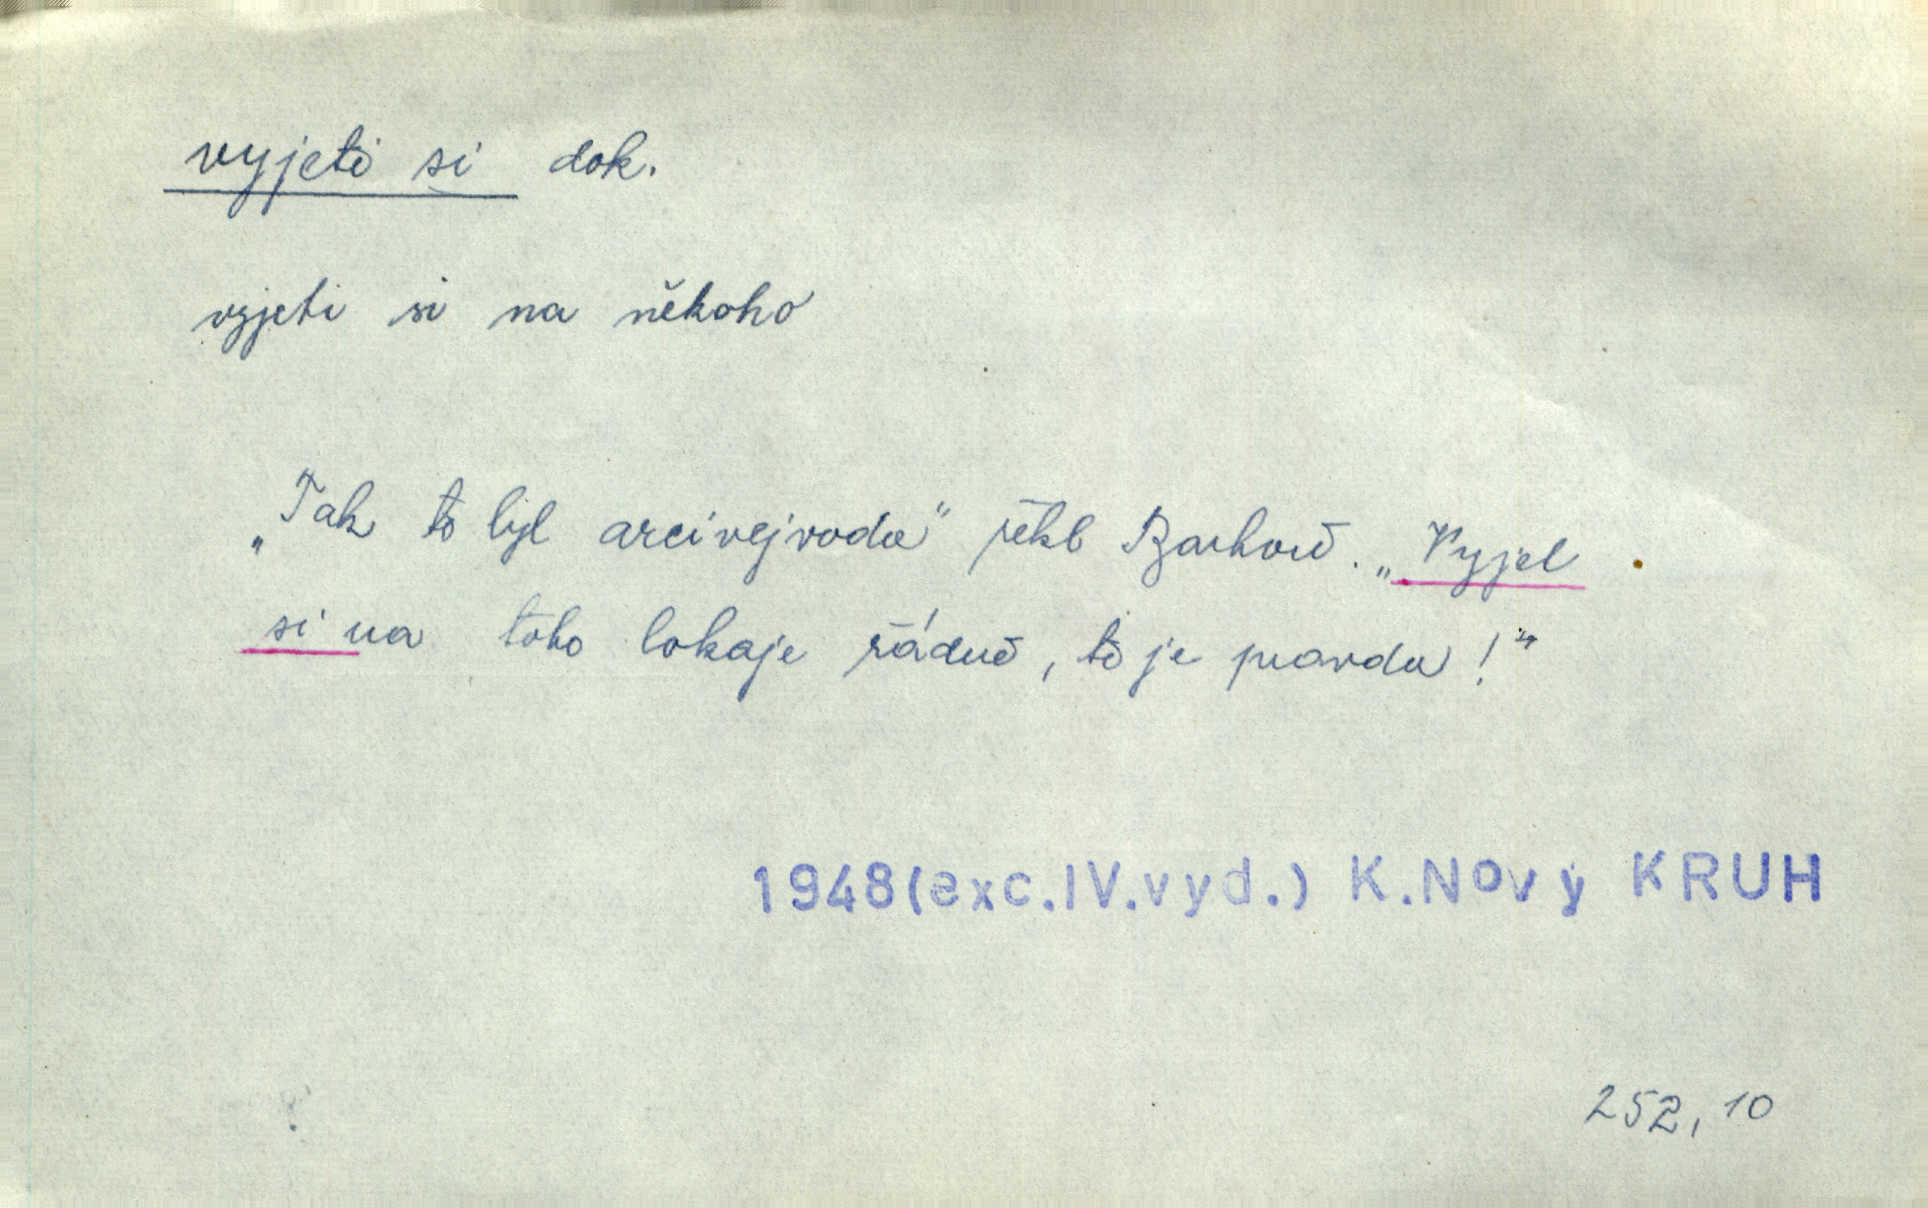 vyjeti si dok.
vyjeti si na někoho
„Tak to byl arcivejvoda“ řekl . „Vyjel
si na toho lokaje řádně, to je pravda!“
1948(exc.IV.vyd.) K.Nový KRUH
252,10